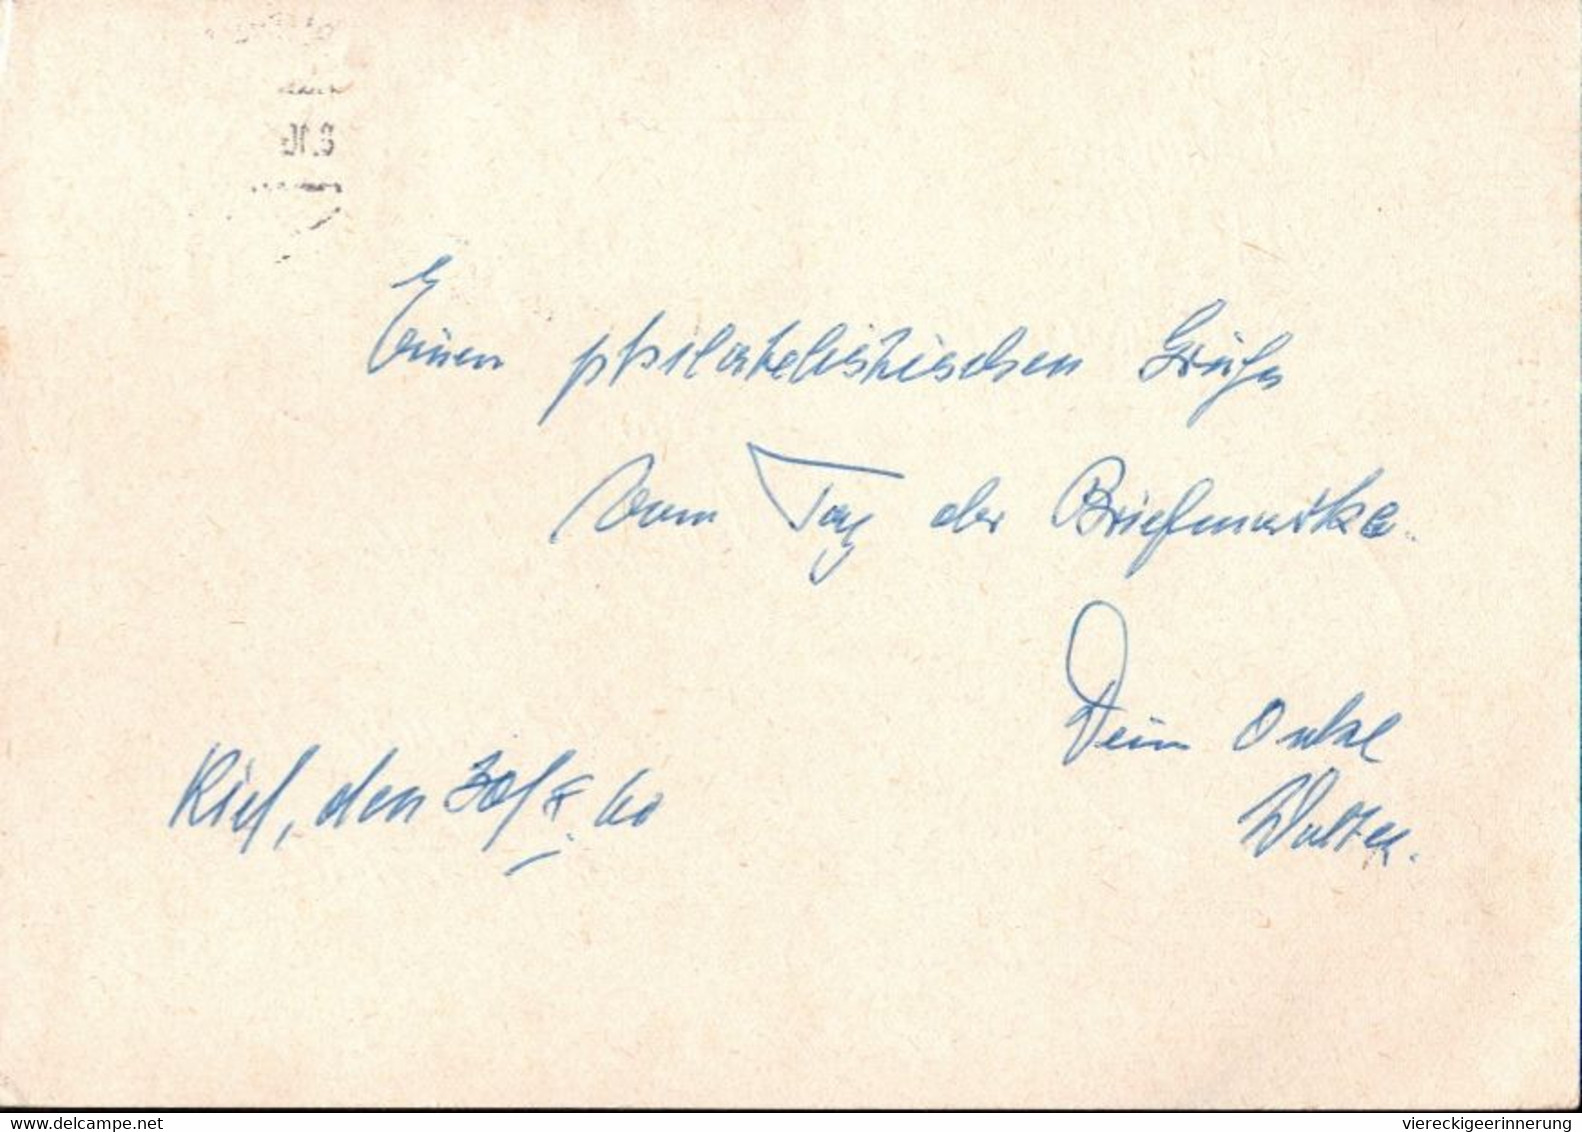 Einen philatelistischen Gruß
vom Tag der Briefmarke.
Dein Onkel
Walter.
Kiel, den 30/X. 60
delcampe.net
viereckigeerinnerung